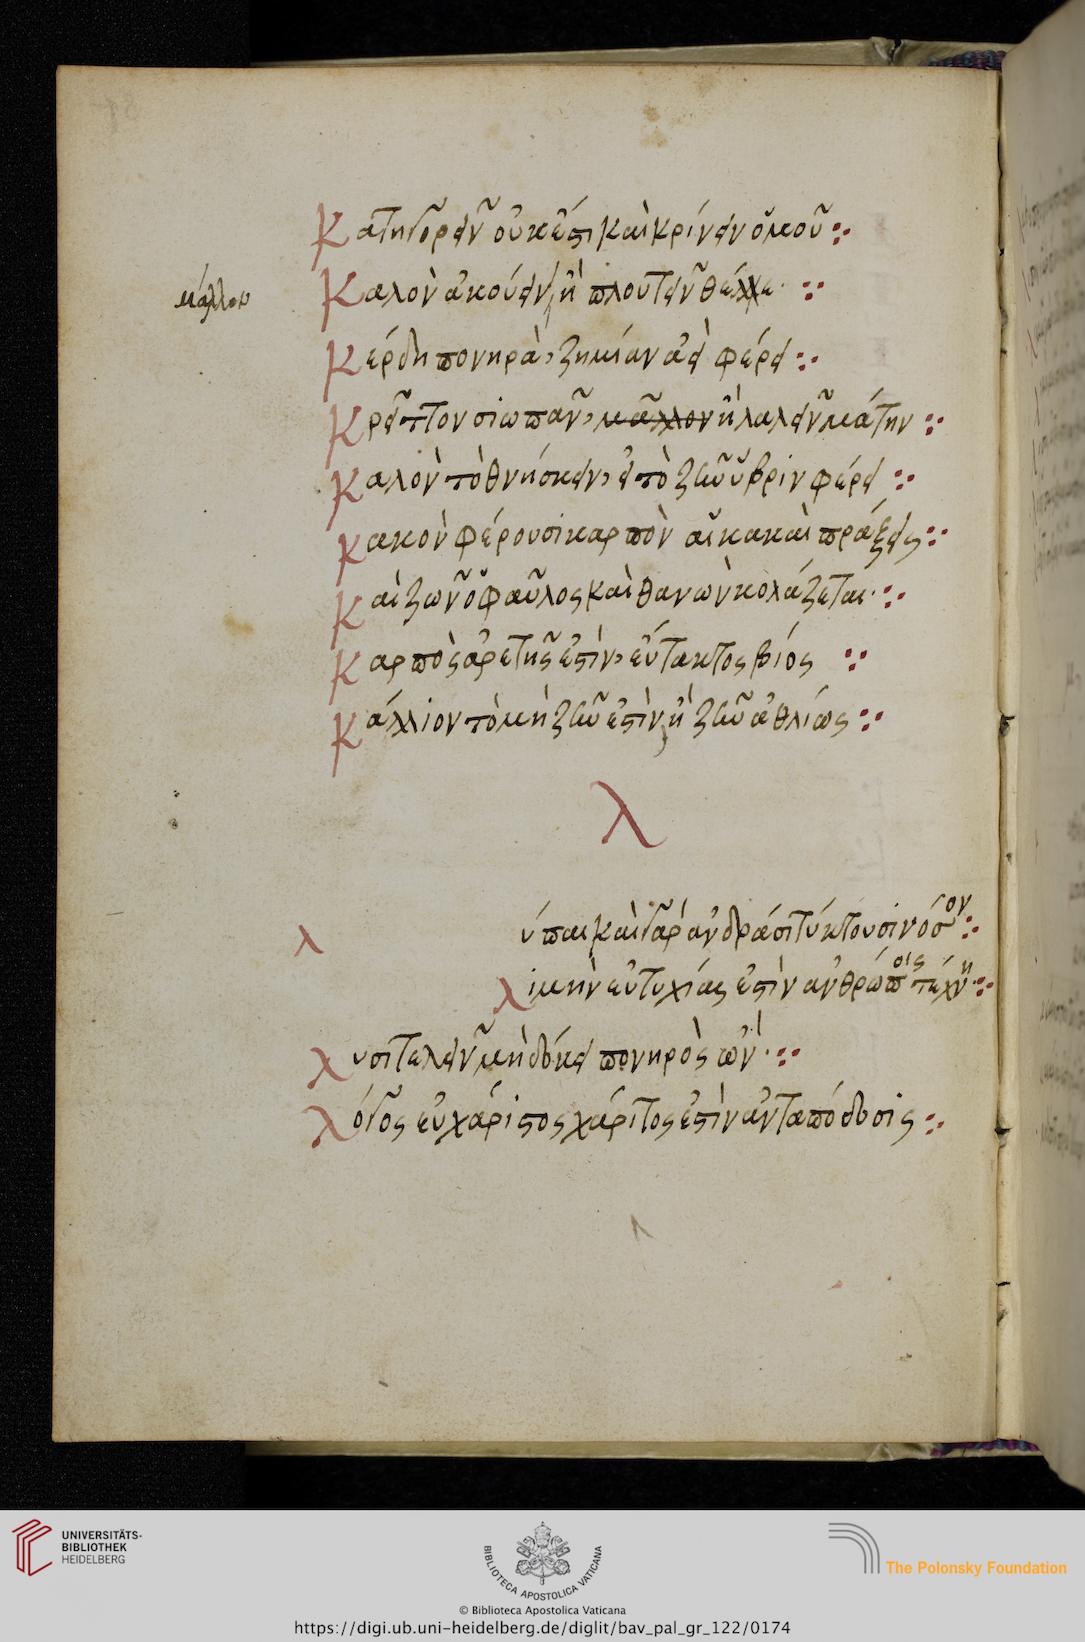 Κατηγορεῖν οὐκ ἔστι καὶ κρίνειν ὁμοῦ:
μάλλον
Καλὸν ἀκούειν, ἢ πλουτεῖν θέλε:
Κέρδη πονηρὰ, ζημίαν ἀεὶ φέρει:
Κρεῖττον σιωπᾶν, μᾶλλον ἢ λαλεῖν μάτην:
Καλὸν τὸ θνήσκειν, εἰ τὸ ζῆν ὕβριν φέρει:
Κακὸν φέρουσι καρπὸν αἱ κακαὶ πράξεις:
Καὶ ζῶν ὁ φαῦλος καὶ θανὼν κολάζεται:
Καρπὸς ἀρετῆς ἐστὶν, εὔτακτος βίος:
Κάλλιον τὸ μὴ ζῆν ἐστὶν, ἢ ζῆν ἀθλίως:
λ
λύπαι καὶ γὰρ ἀνδράσι τίκτουσι νόσον:
λιμὴν εὐτυχίας ἐστὶν ἀνθρώποις τέχνη:
λυσιτελεῖν μὴ δόκει πονηρὸς ὢν:
λόγος εὐχάριστος χάριτος ἐστὶν ἀνταπόδοσις:
UNIVERSITÄTS-
BIBLIOTHEK
HEIDELBERG
BIBLIOTECA APOSTOLICA VATICANA
The Polonsky Foundation
© Biblioteca Apostolica Vaticana
https://digi.ub.uni-heidelberg.de/diglit/bav_pal_gr_122/0174